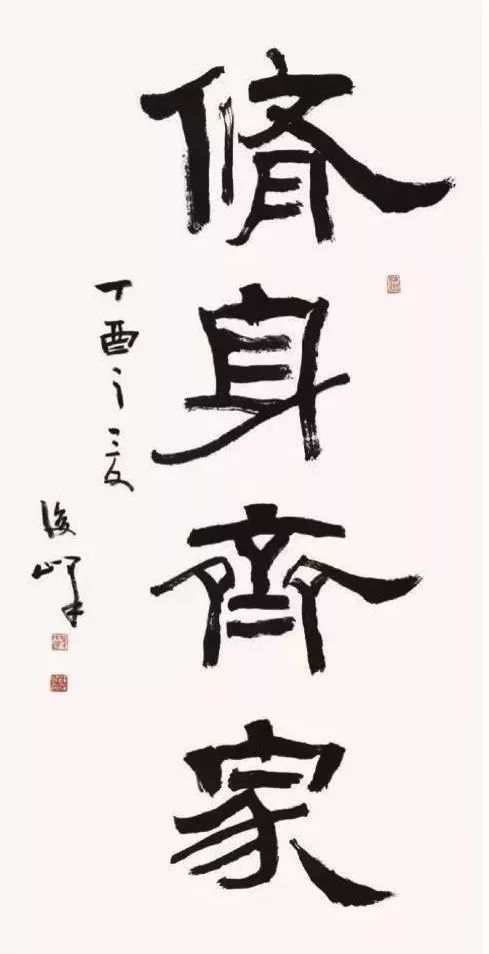 脩身齊家
丁酉之夏